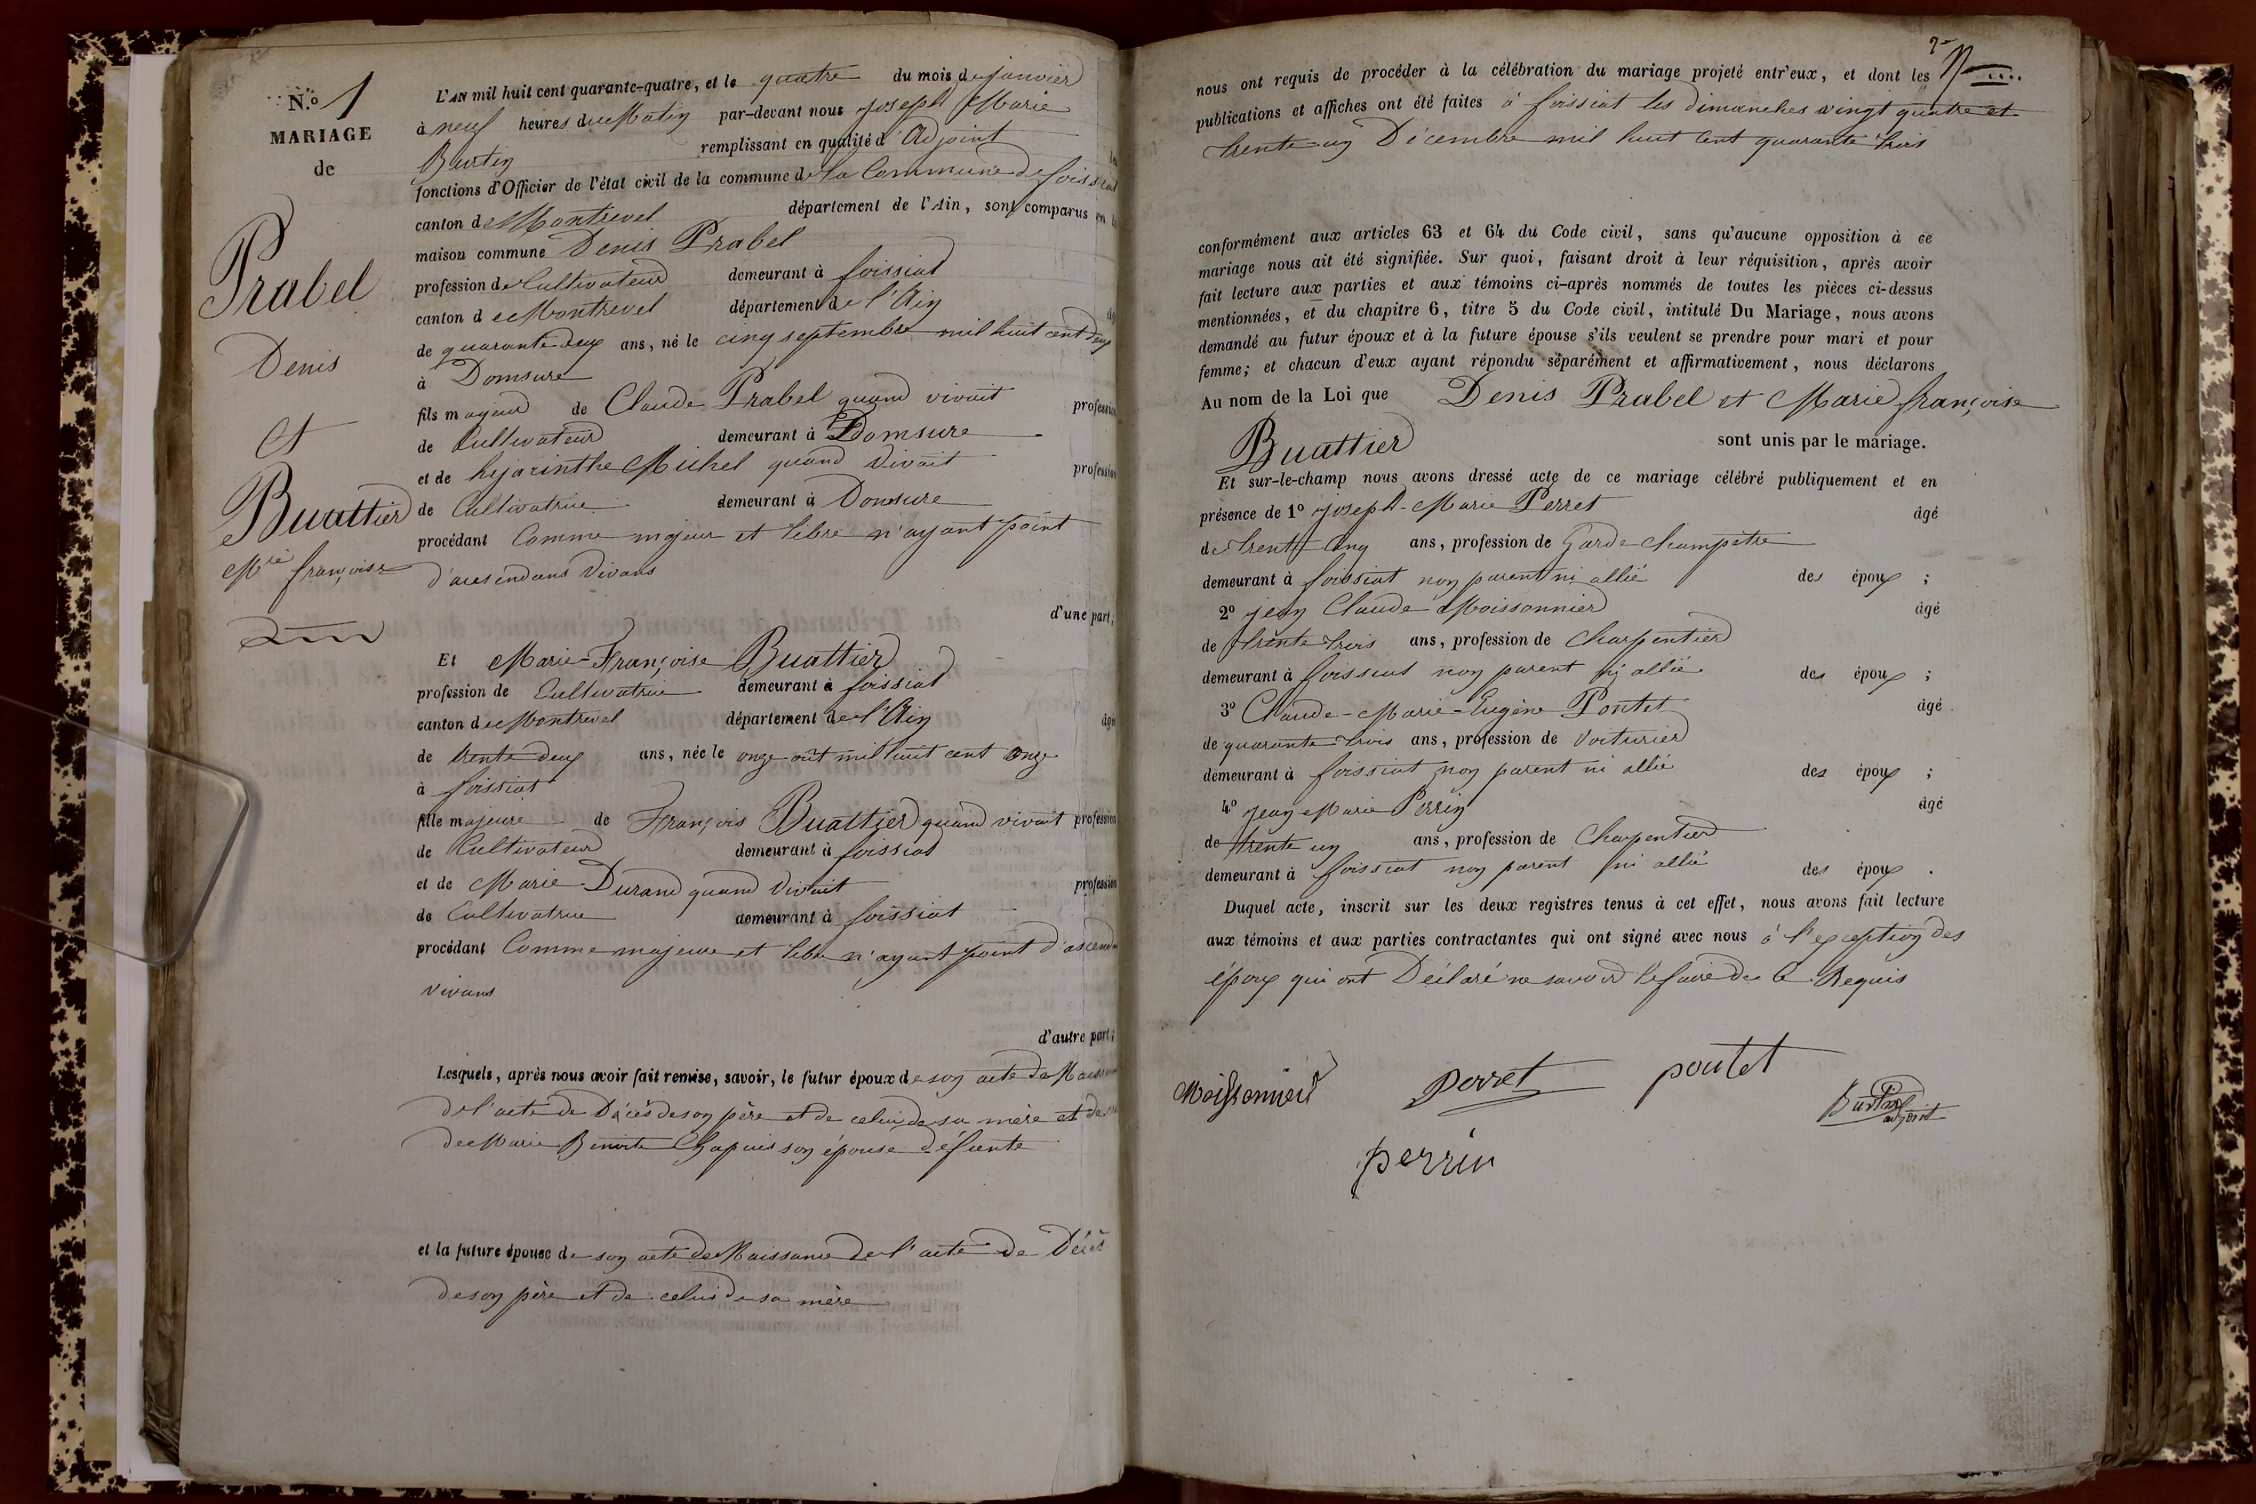 N.o 1
MARIAGE
de
Prabel
Denis
et
Buattier
Mrie françoise
L'AN mil huit cent quarante-quatre, et le quatre du mois de janvier
à neuf heures du Matin par-devant nous Joseph Marie
Burtin remplissant en qualité d'Adjoint les
fonctions d'Officier de l'état civil de la commune de la Commune de foissiat
canton de Montrevel département de l'Ain, sont comparus en la
maison commune Denis Prabel
profession de Cultivateur demeurant à foissiat
canton de Montrevel département de l'Ain âgé
de quarante deux ans, né le cinq septembre mil huit cent deux
à Domsure
fils majeur de Claude Prabel quand vivait profession
de Cultivateur demeurant à Domsure
et de hyacinthe Michel quand Vivait profession
de Cultivatrice demeurant à Domsure
procédant Comme majeur et libre n'ayant point
d'acsendans Vivans
d'une part;
Et Marie-Françoise Buattier
profession de Cultivatrice demeurant à foissiat
canton de Montrevel département de l'Ain âgée
de trente deux ans, née le onze oût mil huit cent onze
à foissiat
fille majeure de François Buattier quand vivait profession
de Cultivateur demeurant à foissiat
et de Marie Durand quand Vivait profession
de Cultivatrice demeurant à foissiat
procédant Comme majeure et libre n'ayant point d'ascendans
vivans
d'autre part;
Lesquels, après nous avoir fait remise, savoir, le futur époux de son acte de Naissance
de l'acte de Décès de son père et de celui de sa mère et de
de Marie Benoite Chapuis son épouse défunte
et la future épouse de son acte de Naissance de l'acte de Décès
de son père et de celui de sa mère
nous ont requis de procéder à la célébration du mariage projeté entr'eux, et dont les
publications et affiches ont été faites à foissiat les Dimanches vingt quatre et
trente un Décembre mil huit cent quarante trois
conformément aux articles 63 et 64 du Code civil, sans qu'aucune opposition à ce
mariage nous ait été signifiée. Sur quoi, faisant droit à leur réquisition, après avoir
fait lecture aux parties et aux témoins ci-après nommés de toutes les pièces ci-dessus
mentionnées, et du chapitre 6, titre 5 du Code civil, intitulé Du Mariage, nous avons
demandé au futur époux et à la future épouse s'ils veulent se prendre pour mari et pour
femme; et chacun d'eux ayant répondu séparément et affirmativement, nous déclarons
Au nom de la Loi que Denis Prabel et Marie françoise
Buattier sont unis par le mariage.
Et sur-le-champ nous avons dressé acte de ce mariage célébré publiquement et en
présence de 1o Joseph-Marie Perret âgé
de trente cinq ans, profession de Garde Champêtre
demeurant à foissiat non parent ni allié des époux ;
2o jean Claude Moissonnier âgé
de trente trois ans, profession de Charpentier
demeurant à foissiat non parent ni allié des époux ;
3o Claude-Marie-Eugène Pontet âgé
de quarante trois ans, profession de Voiturier
demeurant à foissiat non parent ni allié des époux ;
4o jean Marie Perrin âgé
de trente un ans, profession de Charpentier
demeurant à foissiat non parent ni allié des époux .
Duquel acte, inscrit sur les deux registres tenus à cet effet, nous avons fait lecture
aux témoins et aux parties contractantes qui ont signé avec nous à l'exception des
époux qui ont Déclaré ne savoir le faire de ce Requis
Moissonnier perret pontet
Burtin
adjoint
perrin